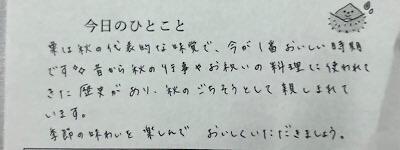 今日のひとこと
栗は秋の代表的な味覚で、今が1番おいしい時期
です♪ 昔から秋の行事やお祝いの料理に使われて
きた歴史があり、秋のごちそうとして親しまれて
います。
季節の味わいを楽しんで おいしくいただきましょう。